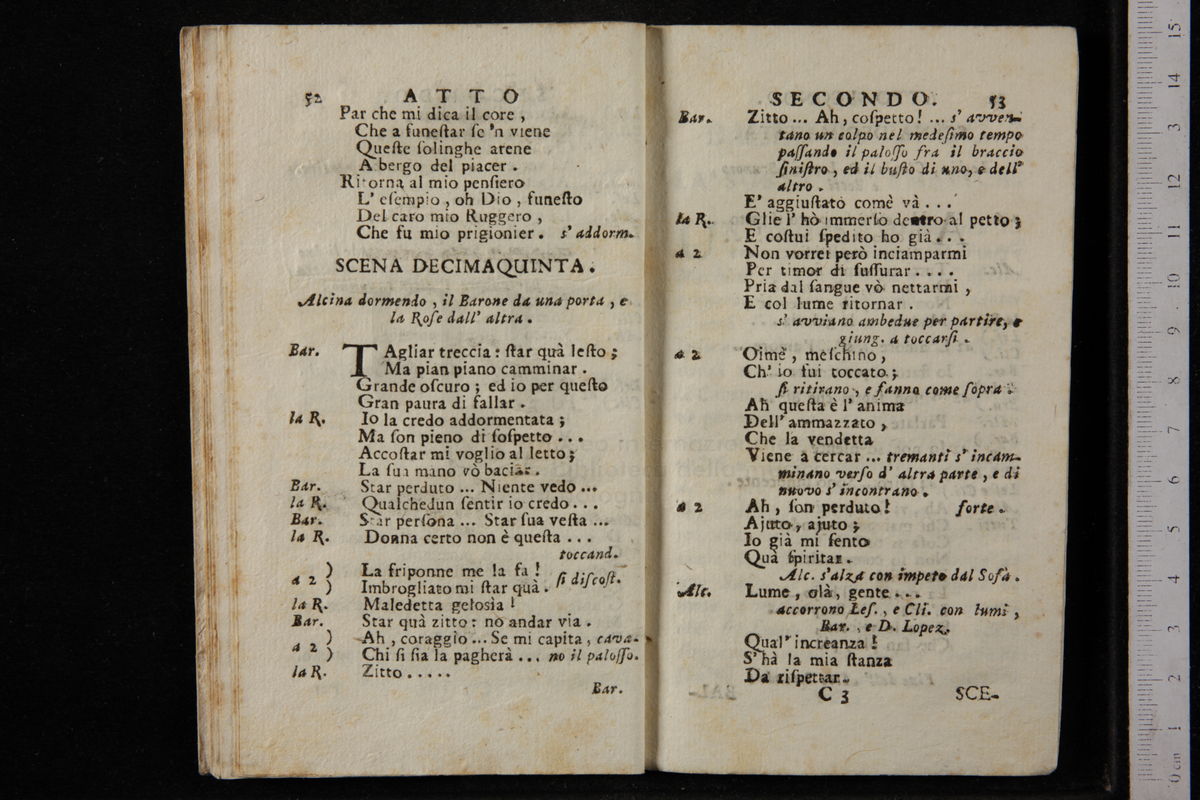 52 ATTO
Par che mi dica il core ,
Che a funeſtar ſe 'n viene
Queſte ſolinghe arene
Albergo del piacer .
Ritorna al mio penſiero
L' eſempio , oh Dio , funeſto
Del caro mio Ruggero ,
Che fu mio prigionier . s' addorm.
SCENA DECIMAQUINTA .
Alcina dormendo , il Barone da una porta , e
la Roſe dall' altra .
Bar. TAgliar treccia : ſtar quà leſto ;
Ma pian piano camminar .
Grande oſcuro ; ed io per queſto
Gran paura di fallar .
la R. Io la credo addormentata ;
Ma ſon pieno di ſoſpetto ...
Accoſtar mi voglio al letto ;
La ſua mano vò baciar .
Bar. Star perduto ... Niente vedo ...
la R. Qualchedun ſentir io credo ...
Bar. Star perſona ... Star ſua veſta ...
la R. Donna certo non è queſta ...
toccand.
a 2 ) La friponne me la fa !
) Imbrogliato mi ſtar quà . ſi diſcoſt.
la R. Maledetta geloſia !
Bar. Star quà zitto : no andar via .
a 2 ) Ah , coraggio ... Se mi capita , cava-
) Chi ſi ſia la pagherà ... no il paloſſo.
la R. Zitto .....
Bar.
SECONDO. 53
Bar. Zitto ... Ah, coſpetto ! ... s' avven-
tano un colpo nel medeſimo tempo
paſſando il paloſſo fra il braccio
ſiniſtro , ed il buſto di uno, e dell'
altro .
E' aggiuſtato comè và ...
la R. Glie l' hò immerſo dentro al petto ;
E coſtui ſpedito ho già ...
a 2 Non vorrei però inciamparmi
Per timor di ſuſſurar ....
Pria dal ſangue vò nettarmi ,
E col lume ritornar .
s' avviano ambedue per partire, e
giung. a toccarſi .
a 2 Oimè , meſchino ,
Ch' io fui toccato ;
ſi ritirano , e fanno come ſopra .
Ah queſta è l' anima
Dell' ammazzato ,
Che la vendetta
Viene a cercar ... tremanti s' incam-
minano verſo d' altra parte , e di
nuovo s' incontrano .
a 2 Ah , ſon perduto ! forte .
Ajuto , ajuto ;
Io già mi ſento
Quà ſpiritar .
Alc. s'alza con impeto dal Sofà .
Alc. Lume , olà , gente ...
accorrono Leſ. , e Cli. con lumi ,
Bar. , e D. Lopez.
Qual' increanza !
S' hà la mia ſtanza
Da riſpettar .
C 3 SCE-